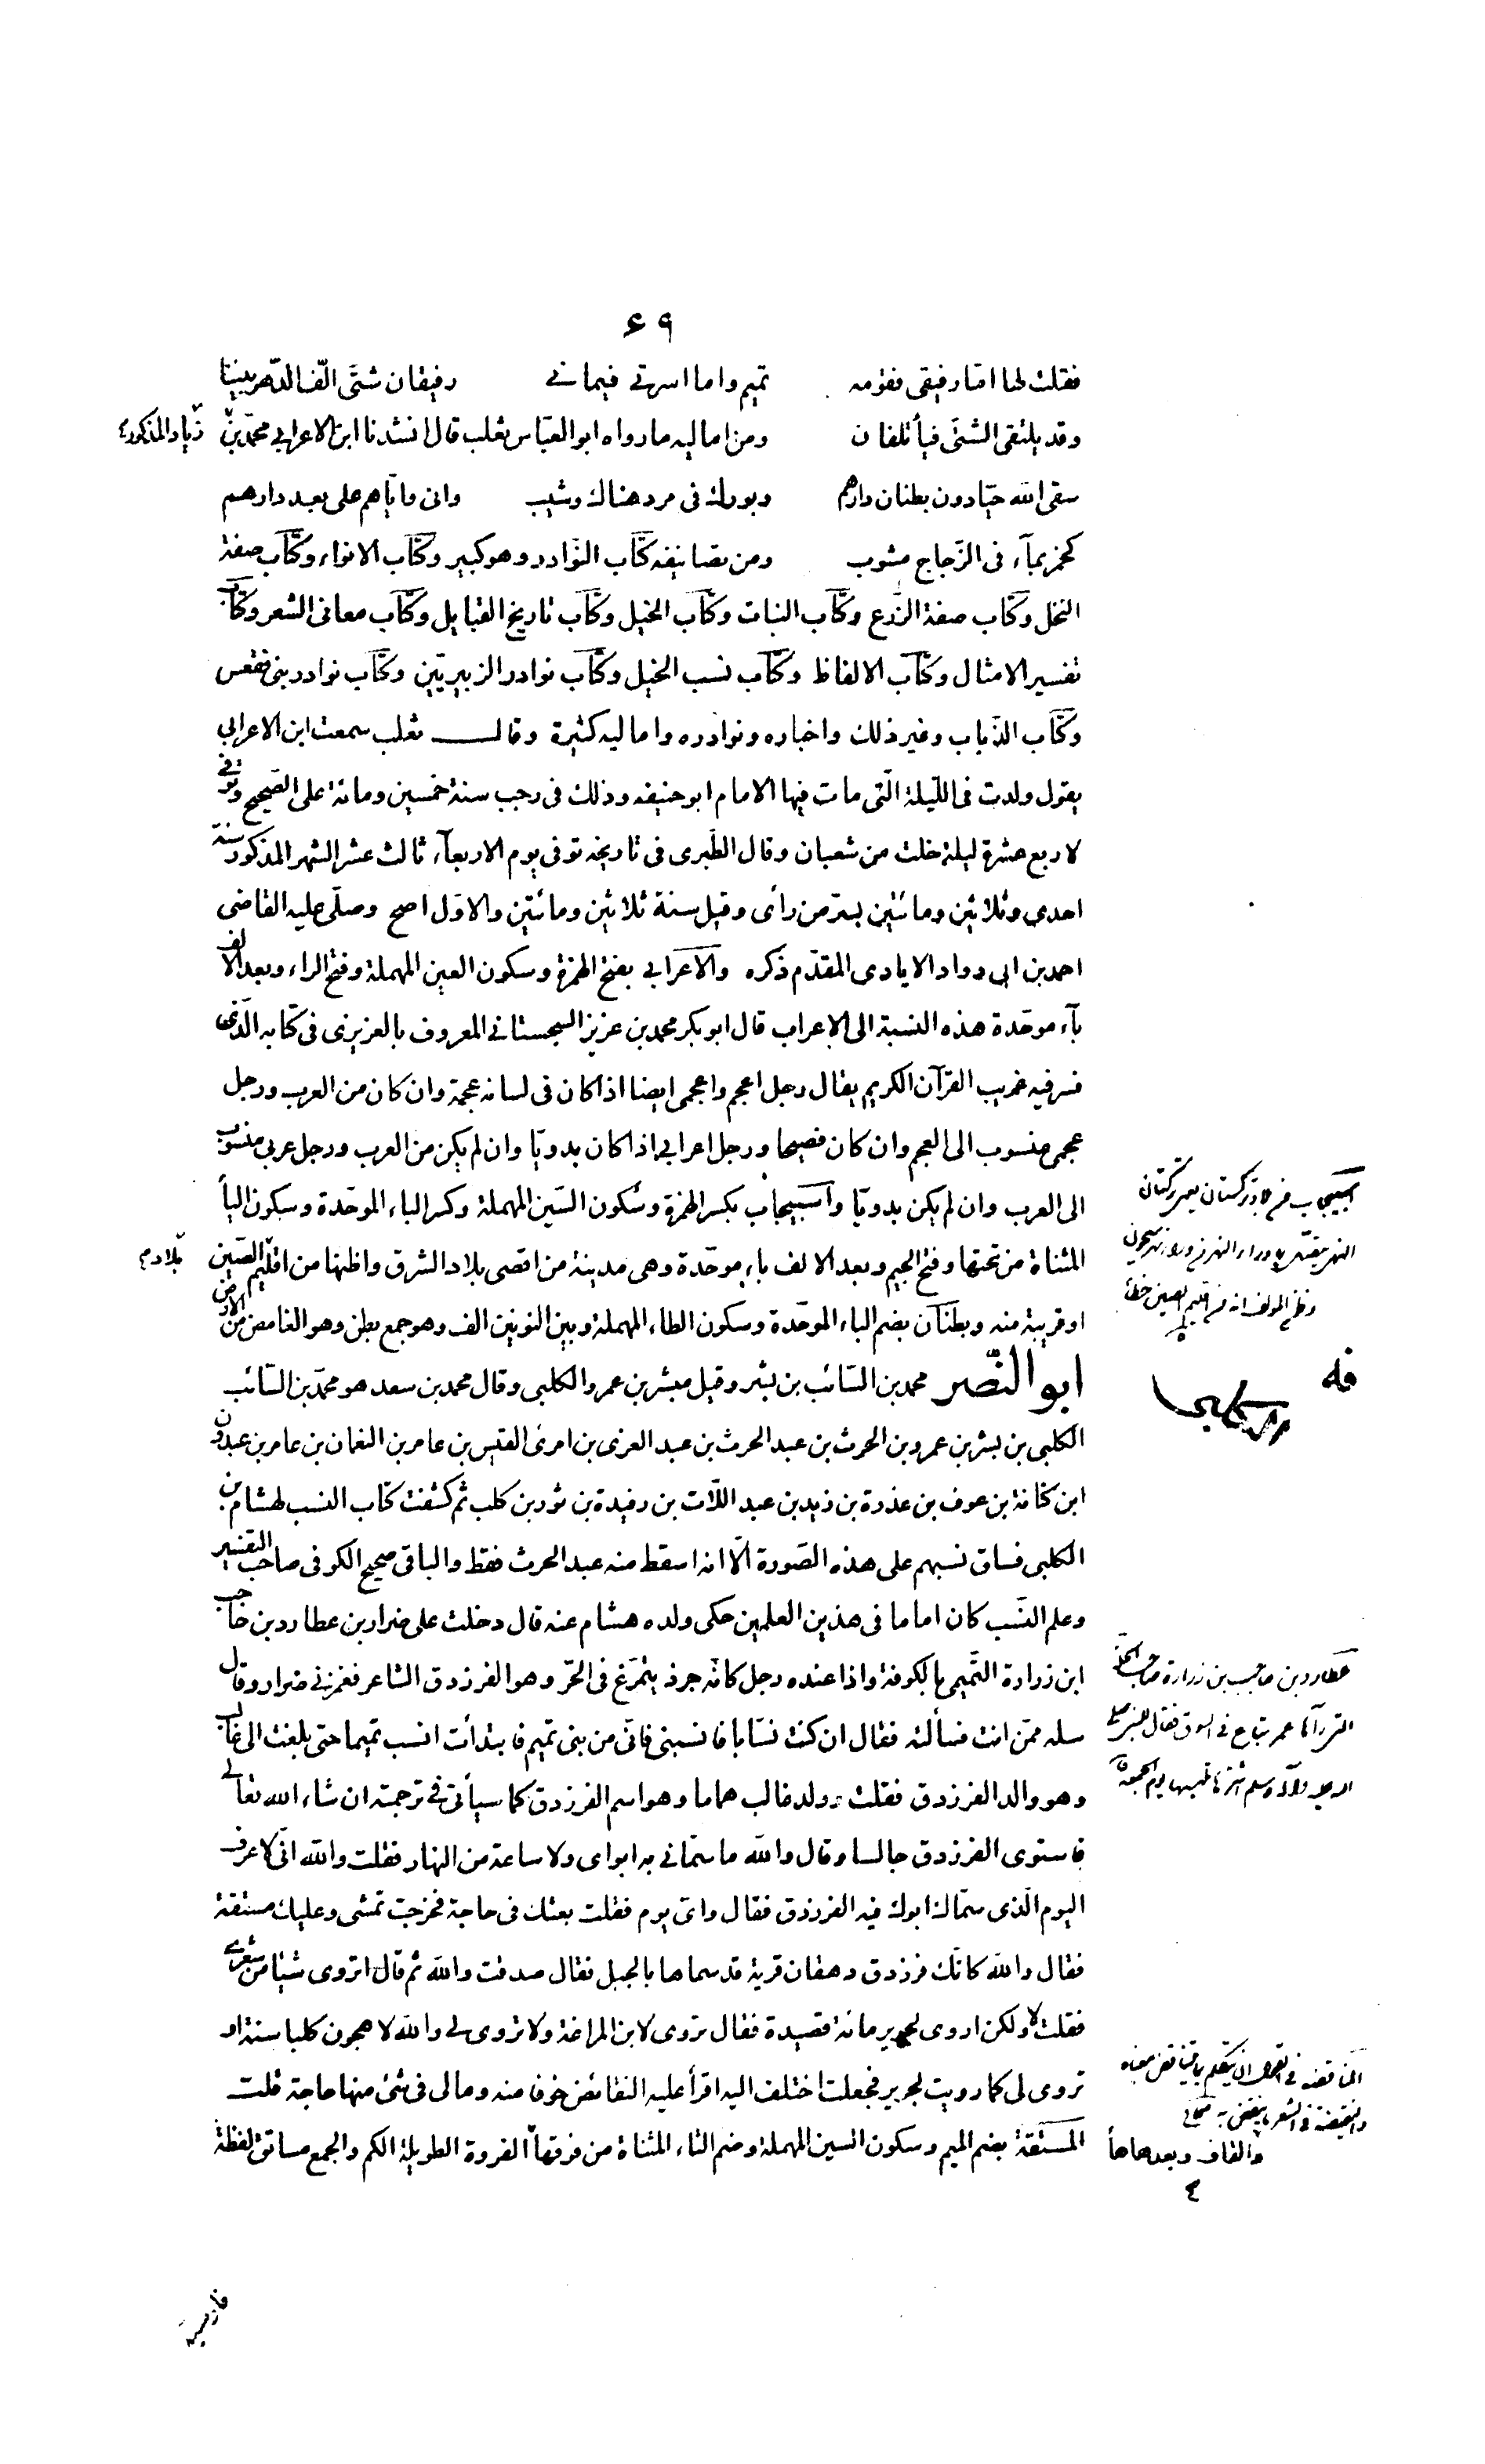 ۶۹
فقلت لها امّا رفيقى فقومه تميم واما اسرتى فيمانى رفيقان شتّى الّف الدّهر بيننا
وقد يلتقى الشتّى فيأتلفان ومن اماليه مارواه ابو العبّاس ثعلب قال انشدنا ابن الاعرابى محمّد بن زياد المذكور
سقى الله حيّا دون بطنان دارهم وبورك فى مرد هناك وشيب وانى واياهم على بعد دارهم
كخمر بمآء فى الزّجاج مشوب ومن تصانيفه كتاب النوادر وهو كبير وكتاب الانواء وكتاب صفة
النخل وكتاب صفة الزّرع وكتاب النبات وكتاب الخيل وكتاب تاريخ القبايل وكتاب معانى الشعر وكتاب
تفسير الامثال وكتاب الالفاظ وكتاب نسب الخيل وكتاب نوادر الزبيريّين وكتاب نوادر بنى فقعس
وكتاب الذّباب وغير ذلك واخباره ونوادره واماليه كثيرة وقال ثعلب سمعت ابن الاعرابى
يقول ولدت فى اللّيلة الّتى مات فيها الامام ابو حنيفه وذلك فى رجب سنة خمسين ومائة على الصّحيح وتوفى
لاربع عشرة ليلة خلت من شعبان وقال الطّبرى فى تاريخه توفى يوم الاربعآء ثالث عشر الشهر المذكور سنة
احدى وثلاثين ومائتين بسرّ من رأى وقيل سنة ثلاثين ومائتين والاوّل اصح وصلّى عليه القاضى
احمد بن ابى دواد الايادى المقدّم ذكره والاعرابى بفتح الهمزة وسكون العين المهملة وفتح الراء وبعد الالف
بآء موحّدة هذه النسبة الى الاعراب قال ابو بكر محمد بن عزيز السجستانى المعروف بالعزيزى فى كتابه الّذى
فسر فيه غريب القرآن الكريم يقال رجل اعجم واعجمى ايضا اذا كان فى لسانه عجمة وان كان من العرب ورجل
عجمى منسوب الى العجم وان كان فصيحا ورجل اعرابى اذا كان بدويّا وان لم يكن من العرب ورجل عربى منسوب
الى العرب وان لم يكن بدويّا واسبيجاب بكسر الهمزة وسكون السّين المهملة وكسر الباء الموحّدة وسكون اليأ
المثناة من تحتها وفتح الجيم وبعد الالف باء موحّدة وهى مدينة من اقصى بلاد الشرق واظنها من اقليم الصّين
او قريبة منه وبطنان بضم الباء الموحّدة وسكون الطاء المهملة وبين النونين الف وهو جمع بطن وهو الغامض من الارض
ابو النّضر محمد بن السّائب بن بشر وقيل مبشر بن عمرو الكلبى وقال محمد بن سعد هو محمّد بن السّائب
الكلبى بن بشر بن عمرو بن الحرث بن عبد الحرث بن عبد العزى بن امرئ القيس بن عامر بن النعمان بن عامر بن عبدون
ابن كنانة بن عوف بن عذرة بن زيد بن عبد اللّات بن رفيدة بن ثور بن كلب ثم كشفت كتاب النسب لهشام بن
الكلبى فساق نسبهم على هذه الصّورة الّا انه اسقط منه عبد الحرث فقط والباقى صحيح الكوفى صاحب التفسير
وعلم النّسب كان اماما فى هذين العلمين حكى ولده هشام عنه قال دخلت على ضرار بن عطارد بن حاجب
ابن زرارة التّميمى بالكوفة واذا عنده رجل كانّه جرذ يتمرّغ فى الخّر وهو الفرزدق الشاعر فغمزنى ضرار وقال
سله ممّن انت فسألته فقال ان كنت نسّابا فانسبنى فانّى من بنى تميم فابتدأت انسب تميما حتى بلغت الى غالب
وهو والد الفرزدق فقلت وولد غالب هماما وهو اسم الفرزدق كما سيأتى فى ترجمته ان شاء الله تعالى
فاستوى الفرزدق جالسا وقال والله ما سمّانى به ابواى ولا ساعة من النهار فقلت والله انّى لاعرف
اليوم الّذى سمّاك ابوك فيه الفرزدق فقال واىّ يوم فقلت بعثك فى حاجة فخرجت تمشى وعليك مستقة
فقال والله كانّك فرزدق دهقان قرية قد سماها بالجبل فقال صدقت والله ثم قال اتروى شيئا من شعرى
فقلت لا ولكن اروى لجرير مائة قصيدة فقال تروى لابن المراغة ولا تروى لى والله لاهجون كلبا سنة او
تروى لى كما رويت لجرير فجعلت اختلف اليه اقرأ عليه النقائض خوفا منه ومالى فى شئ منها حاجة قلت
المستقة بضم الميم وسكون السين المهملة وضم التاء المثناة من فوقها الفروة الطويلة الكم والجمع مساتق لفظة
والقاف وبعدها هاأ
فارسيّة